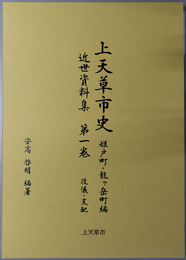 上天草市史
姫戸町・龍ヶ岳町編
近世資料集 第一巻
役儀・支配
安高 啓明 編著
上天草市